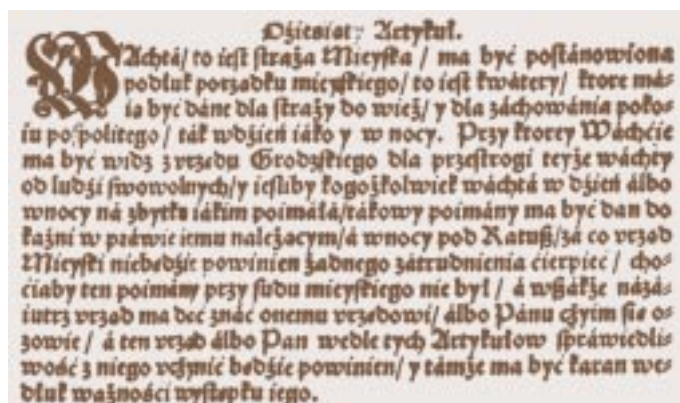 Dźiesiąty Artykuł.
WAchtá/ to iest straża Mieyska / ma być postánowiona
podług porządku mieyskiego/ to iest kwátery/ ktore má-
ia być dáne dla straży do wież/ y dla záchowánia poko-
iu pospolitego / ták wdźień iáko y w nocy. Przy ktorey Wáchćie
ma być widz z vrzędu Grodzskiego dla przestrogi teyże wáchty
od ludźi swowolnych/ y iesliby kogożkolwiek wáchtá w dźień álbo
wnocy ná zbytku iákim poimáłá/ tákowy poimány ma być dan do
kaźni w práwie iemu należącym/ á wnocy pod Ratusz/ zá co vrząd
Mieyski niebędźie powinien żadnego zátrudnienia ćierpieć / cho-
ćiaby ten poimány przy sądu mieyskiego nie był / á wszákże názá-
iutrz vrząd ma dać znáć onemu vrzędowi/ álbo Pánu czyim się o-
zowie / á ten vrząd álbo Pan wedle tych Artykułow spráwiedli-
wość z niego vczynić będźie powinien/ y támże ma być karan we-
dług ważnośći występku iego.